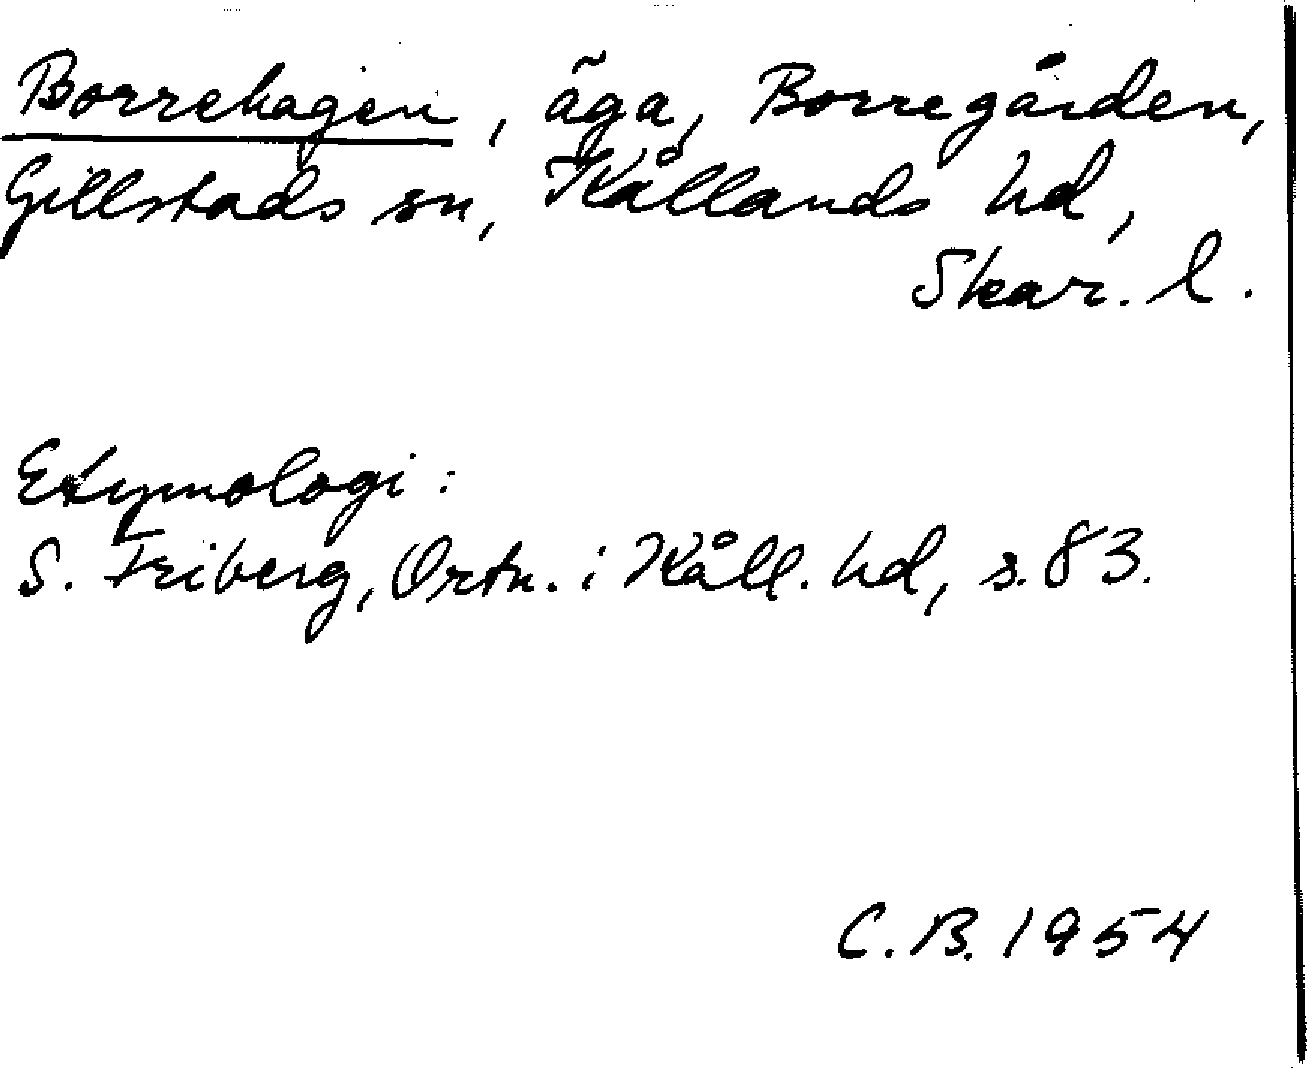 Borrehagen, äga, Borregården,
Gillstads sn, Kållands hd,
Skar. l.
Etymologi:
S. Friberg, Ortn. i Kåll. hd, s. 83.
C. B. 1954